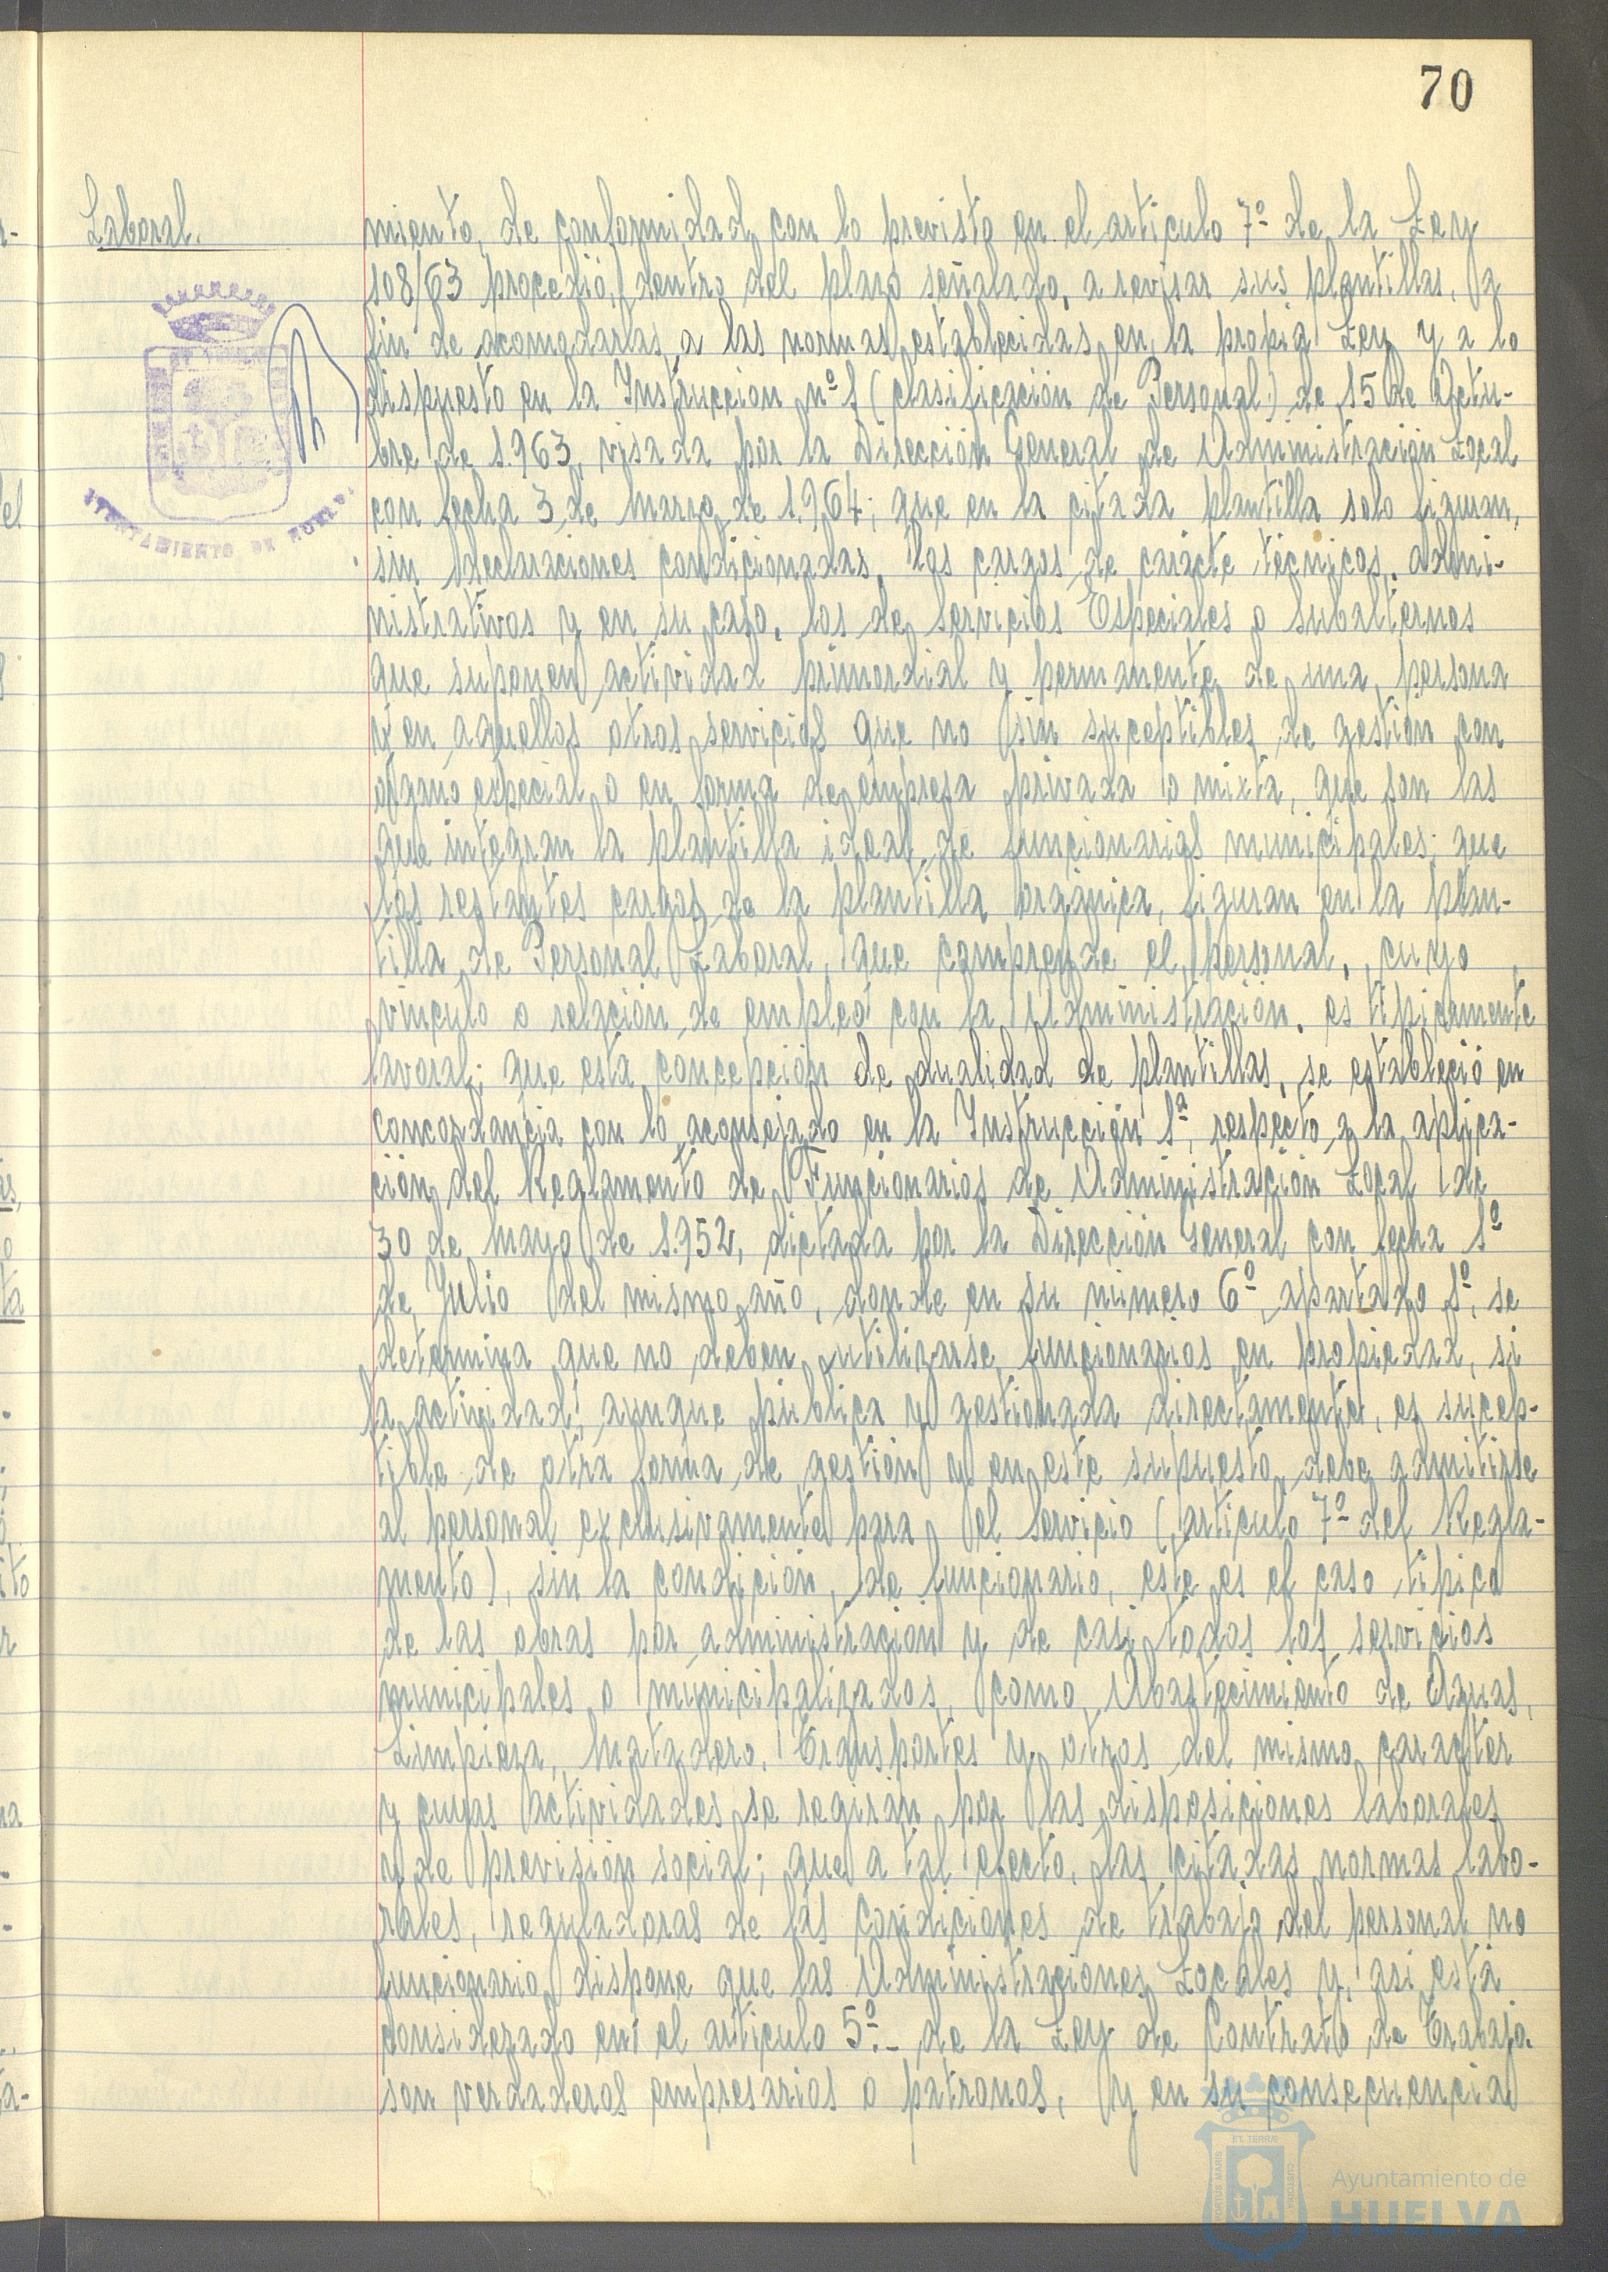 70
Laboral.
miento, de conformidad con lo previsto en el artículo 7º de la Ley
108/63 procedió, dentro del plazo señalado, a revisar sus plantillas, a
fin de acomodarlas a las normas establecidas en la propia Ley y a lo
dispuesto en la Instrucción nº 1 (clasificación de Personal) de 15 de Octu-
bre de 1.963, visada por la Dirección General de Administración Local
con fecha 3 de Marzo de 1.964; que en la citada plantilla solo figuran,
sin declaraciones condicionadas, los cargos de carácte técnicos, admi-
nistrativos y en su caso, los de Servicios Especiales o subalternos
que suponen actividad primordial y permanente de una persona
y en aquellos otros servicios que no sin suceptibles de gestión con
órgano especial o en forma de empresa privada o mixta, que son las
que integran la plantilla ideal de funcionarios municipales; que
los restantes cargos de la plantilla orgánica, figuran en la plan-
tilla de Personal Laboral, que comprende el personal, cuyo
vínculo o relación de empleo con la Administración, es típicamente
lavoral; que esta concepción de dualidad de plantillas, se estableció en
concordancia con lo aconsejado en la Instrucción 1ª, respecto a la aplica-
ción del Reglamento de Funcionarios de Administración Local de
30 de Mayo de 1.952, dictada por la Dirección General con fecha 1º
de Julio del mismo año, donde en su número 6º, apartado 1º, se
determina que no deben utilizarse funcionarios en propiedad, si
la actividad, aunque pública y gestionada directamente, es sucep-
tible de otra forma de gestión y en este supuesto debe admitirse
al personal exclusivamente para el servicio (artículo 7º del Regla-
mento), sin la condición de funcionario, este es el caso típico
de las obras por administración y de casi todos los servicios
municipales o municipalizados, como Abastecimiento de Aguas,
Limpieza, Matadero, Transportes y otros del mismo carácter
y cuyas actividades se regirán por las disposiciones laborales
y de previsión social; que a tal efecto, las citadas normas labo-
rales, reguladoras de las condiciones de trabajo del personal no
funcionario dispone que las Administraciones Locales y, así está
considerado en el artículo 5º.- de la Ley de Contrato de Trabajo
son verdaderos empresarios o patronos, y en su consecuencia
AYUNTAMIENTO DE HUELVA
PORTUS MARIS ET TERRÆ CUSTODIA
Ayuntamiento de
HUELVA